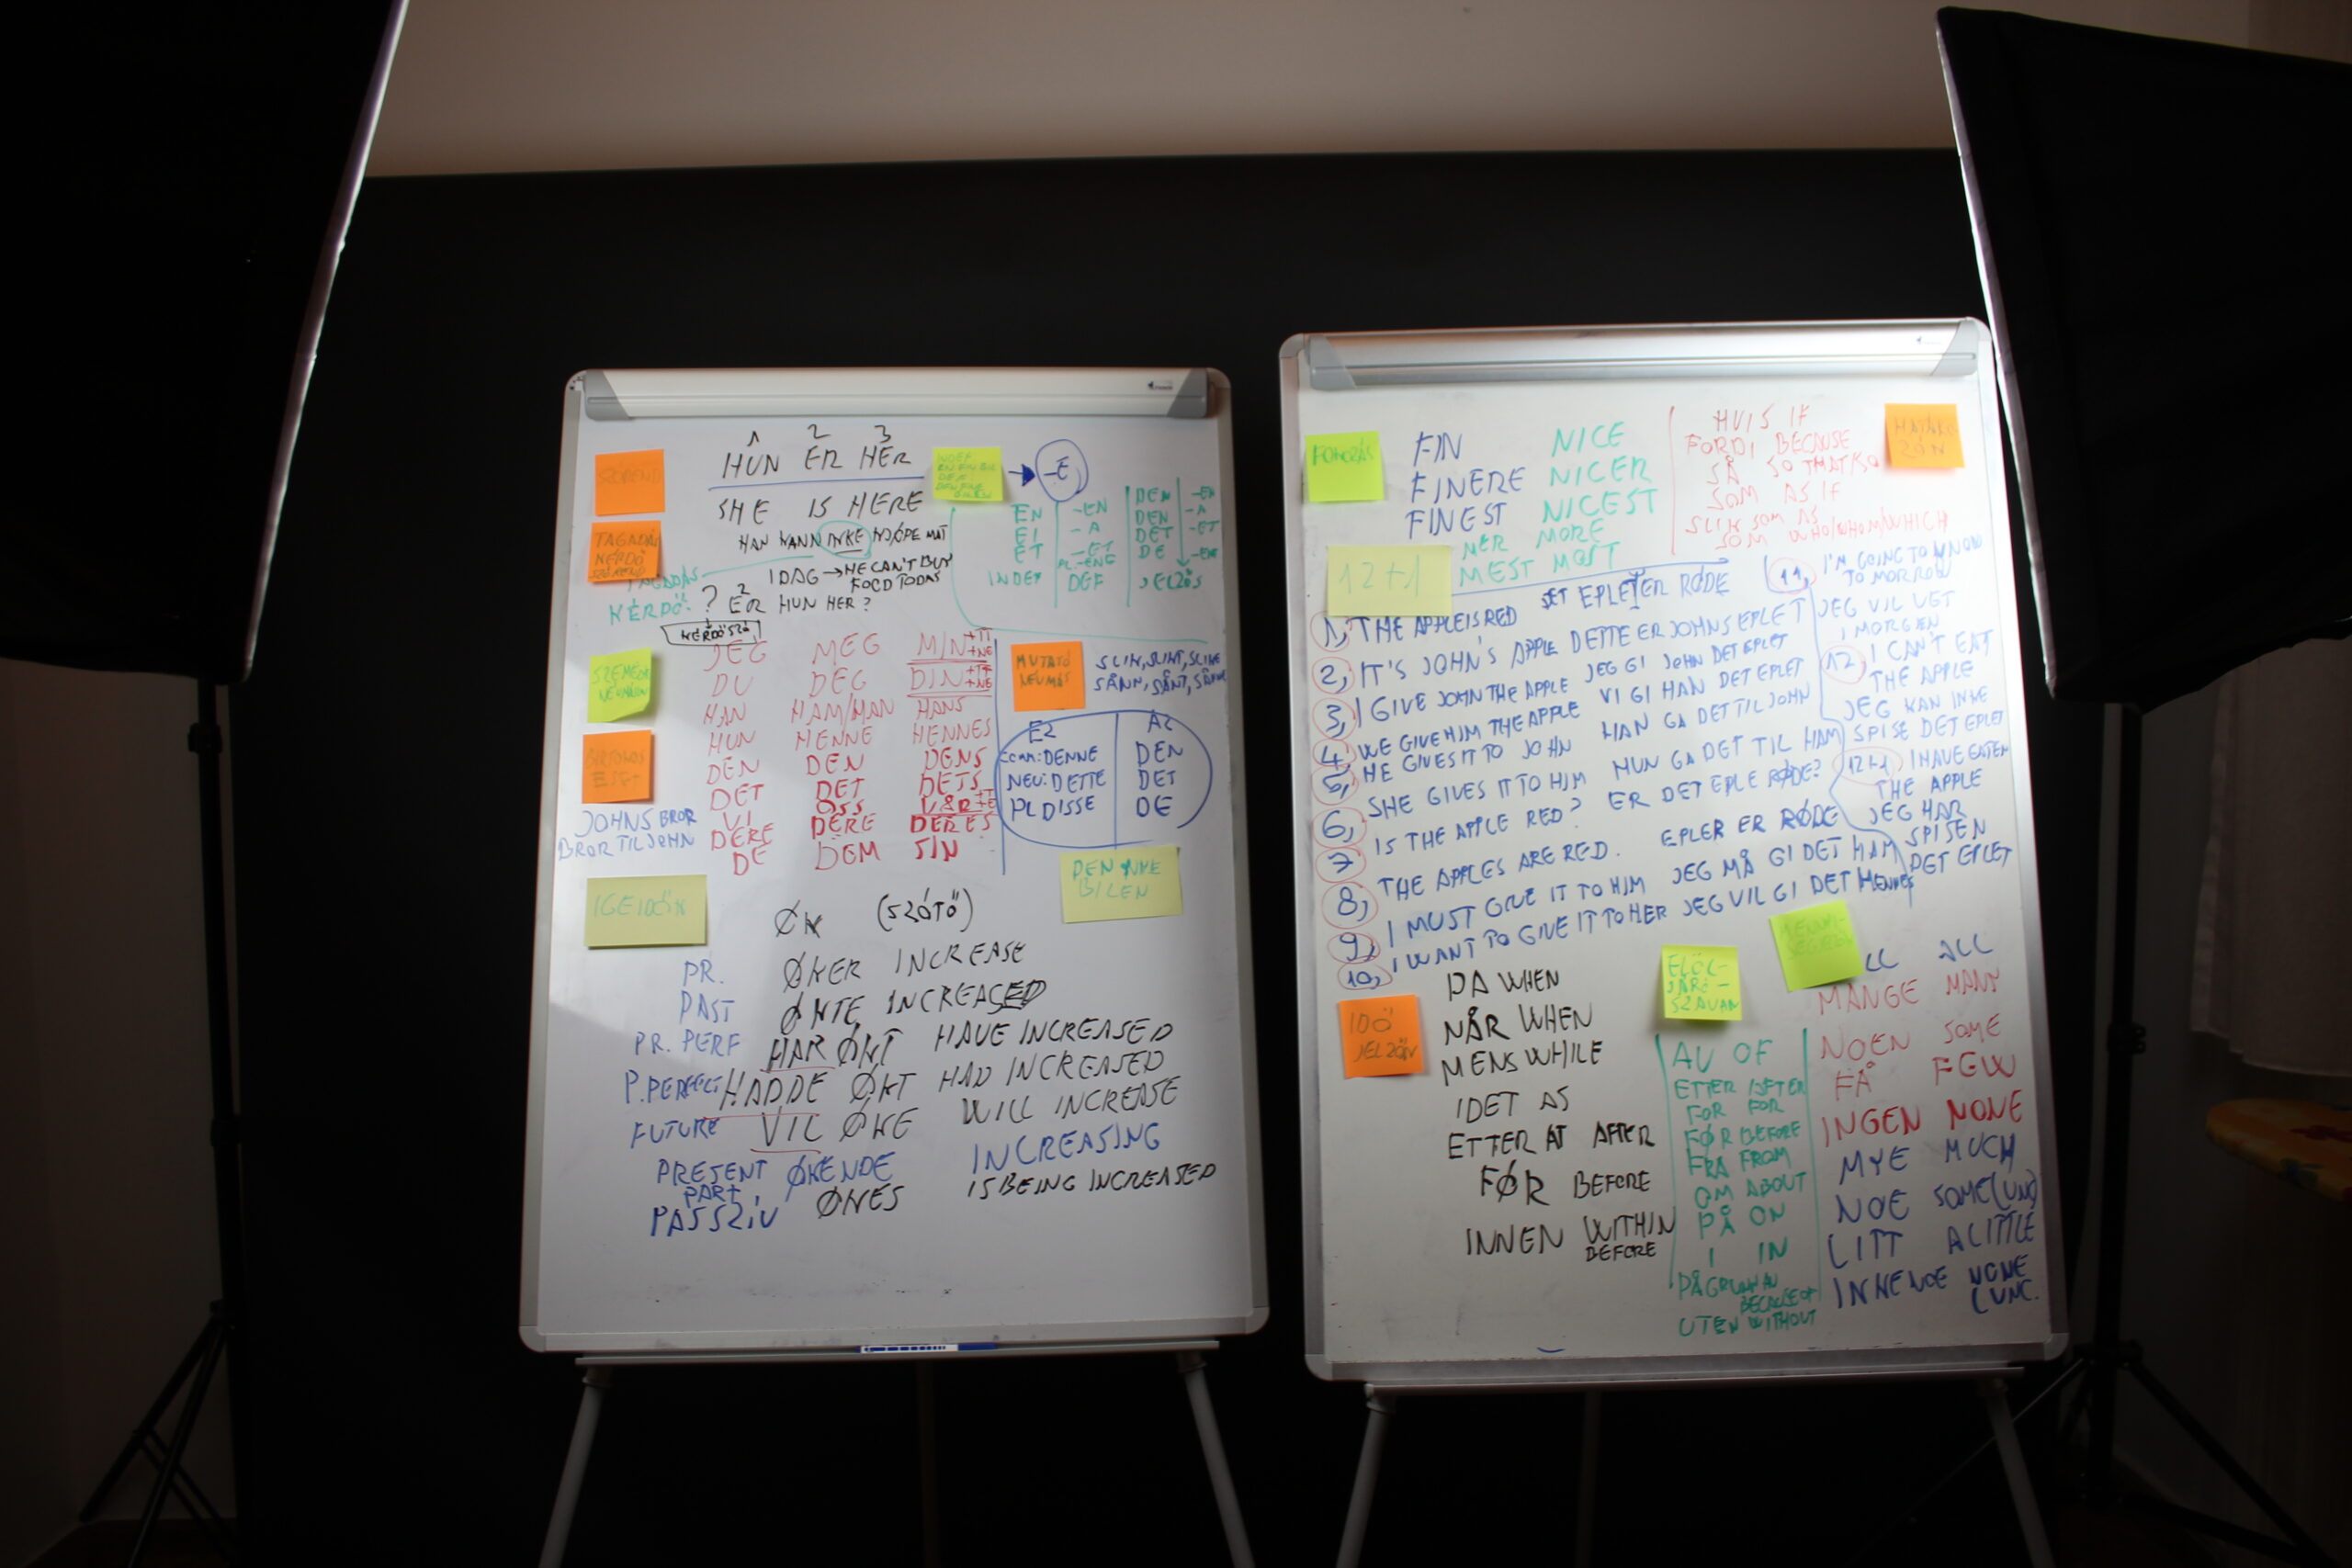 1 2 3
HUN ER HER
SHE IS HERE
SZÓREND
TAGADÁS
KÉRDŐ
SZÓREND
HAN KANN IKKE KJØPE MAT
I DAG → HE CAN'T BUY
FOOD TODAY
TAGADÁS
KÉRDŐ: ? ER HUN HER ?
2
KÉRDŐSZÓ
INDEF
-E
EN -EN DEN -EN
EI -A DEN -A
ET -ET DET -ET
PL-ENE DE -ENE
INDEF DEF JELZŐS
SZEMÉLYES
NÉVMÁSOK
JEG MEG MIN +TT +NE
DU DEG DIN +TT +NE
HAN HAM/HAN HANS
HUN HENNE HENNES
DEN DEN DENS
DET DET DETS
VI OSS VÅR +T +E
DERE DERE DERES
DE DEM SIN
BIRTOKOS
ESET
JOHNS BROR
BROR TIL JOHN
MUTATÓ
NÉVMÁS
SLIK, SLIKT, SLIKE
SÅNN, SÅNT, SÅNNE
EZ AZ
COM: DENNE DEN
NEU: DETTE DET
PL DISSE DE
DEN NYE
BILEN
IGEIDŐK
ØK (SZÓTŐ)
PR. ØKER INCREASE
PAST ØKTE INCREASED
PR. PERF HAR ØKT HAVE INCREASED
P. PERFECT HADDE ØKT HAD INCREASED
FUTURE VIL ØKE WILL INCREASE
PRESENT PART, ØKENDE INCREASING
PASSZIV ØKES IS BEING INCREASED
FOKOZÁS
FIN NICE
FINERE NICER
FINEST NICEST
MER MORE
MEST MOST
HVIS IF
FORDI BECAUSE
SÅ SO THAT
SOM AS IF
SLIK SOM AS
SOM WHO/WHOM/WHICH
12+1
1, THE APPLE IS RED DET EPLET ER RØDE
2, IT'S JOHN'S APPLE DETTE ER JOHNS EPLET
3, I GIVE JOHN THE APPLE JEG GI JOHN DET EPLET
4, WE GIVE HIM THE APPLE VI GI HAN DET EPLET
5, HE GIVES IT TO JOHN HAN GA DET TIL JOHN
6, SHE GIVES IT TO HIM HUN GA DET TIL HAM
7, IS THE APPLE RED? ER DET EPLE RØDE?
8, THE APPLES ARE RED. EPLER ER RØDE
9, I MUST GIVE IT TO HIM JEG MÅ GI DET HAM
10, I WANT TO GIVE IT TO HER JEG VIL GI DET HENNES
11, I'M GOING TO KNOW
TOMORROW
JEG VIL VET
I MORGEN
12, I CAN'T EAT
THE APPLE
JEG KAN IKKE
SPISE DET EPLET
12+1 I HAVE EATEN
THE APPLE
JEG HAR
SPISEN
DET EPLET
IDŐ
JELZŐK
DA WHEN
NÅR WHEN
MENS WHILE
IDET AS
ETTER AT AFTER
FØR BEFORE
INNEN WITHIN
BEFORE
ELÖL-
JÁRÓ-
SZAVAK
AV OF
ETTER AFTER
FOR FOR
FØR BEFORE
FRA FROM
OM ABOUT
PÅ ON
I IN
PÅ GRUNN AV
BECAUSE OF
UTEN WITHOUT
ALL
MANGE MANY
NOEN SOME
FÅ FEW
INGEN NONE
MYE MUCH
NOE SOME (UNC)
LITT A LITTLE
INKENOE NONE
(UNC.